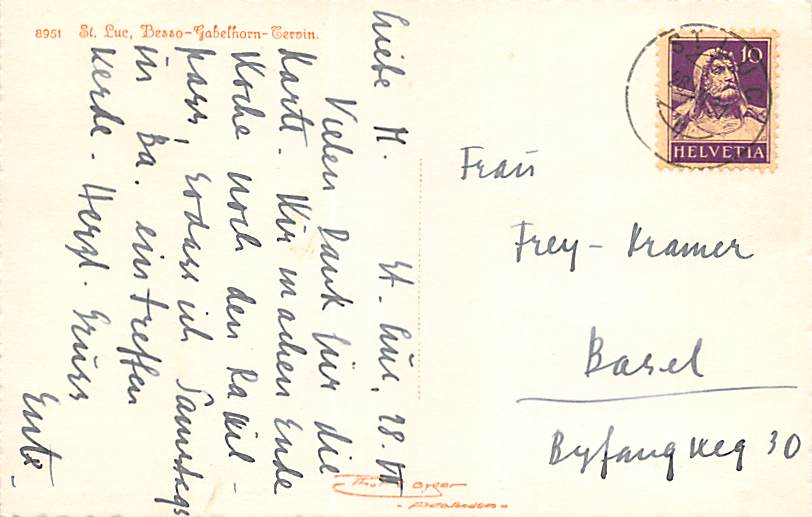 8951 St. Luc, Besso-Gabelhorn-Cervin.
Liebe M. St. Luc, 28. VII
Vielen Dank für die
Karte. Wir machen Ende
Woche noch den
pass, sodass ich Samstags
in Ba. eintreffen
werde. Herzl. Gruss
10
HELVETIA
Frau
Frey-Kramer
Basel
Byfangweg 30